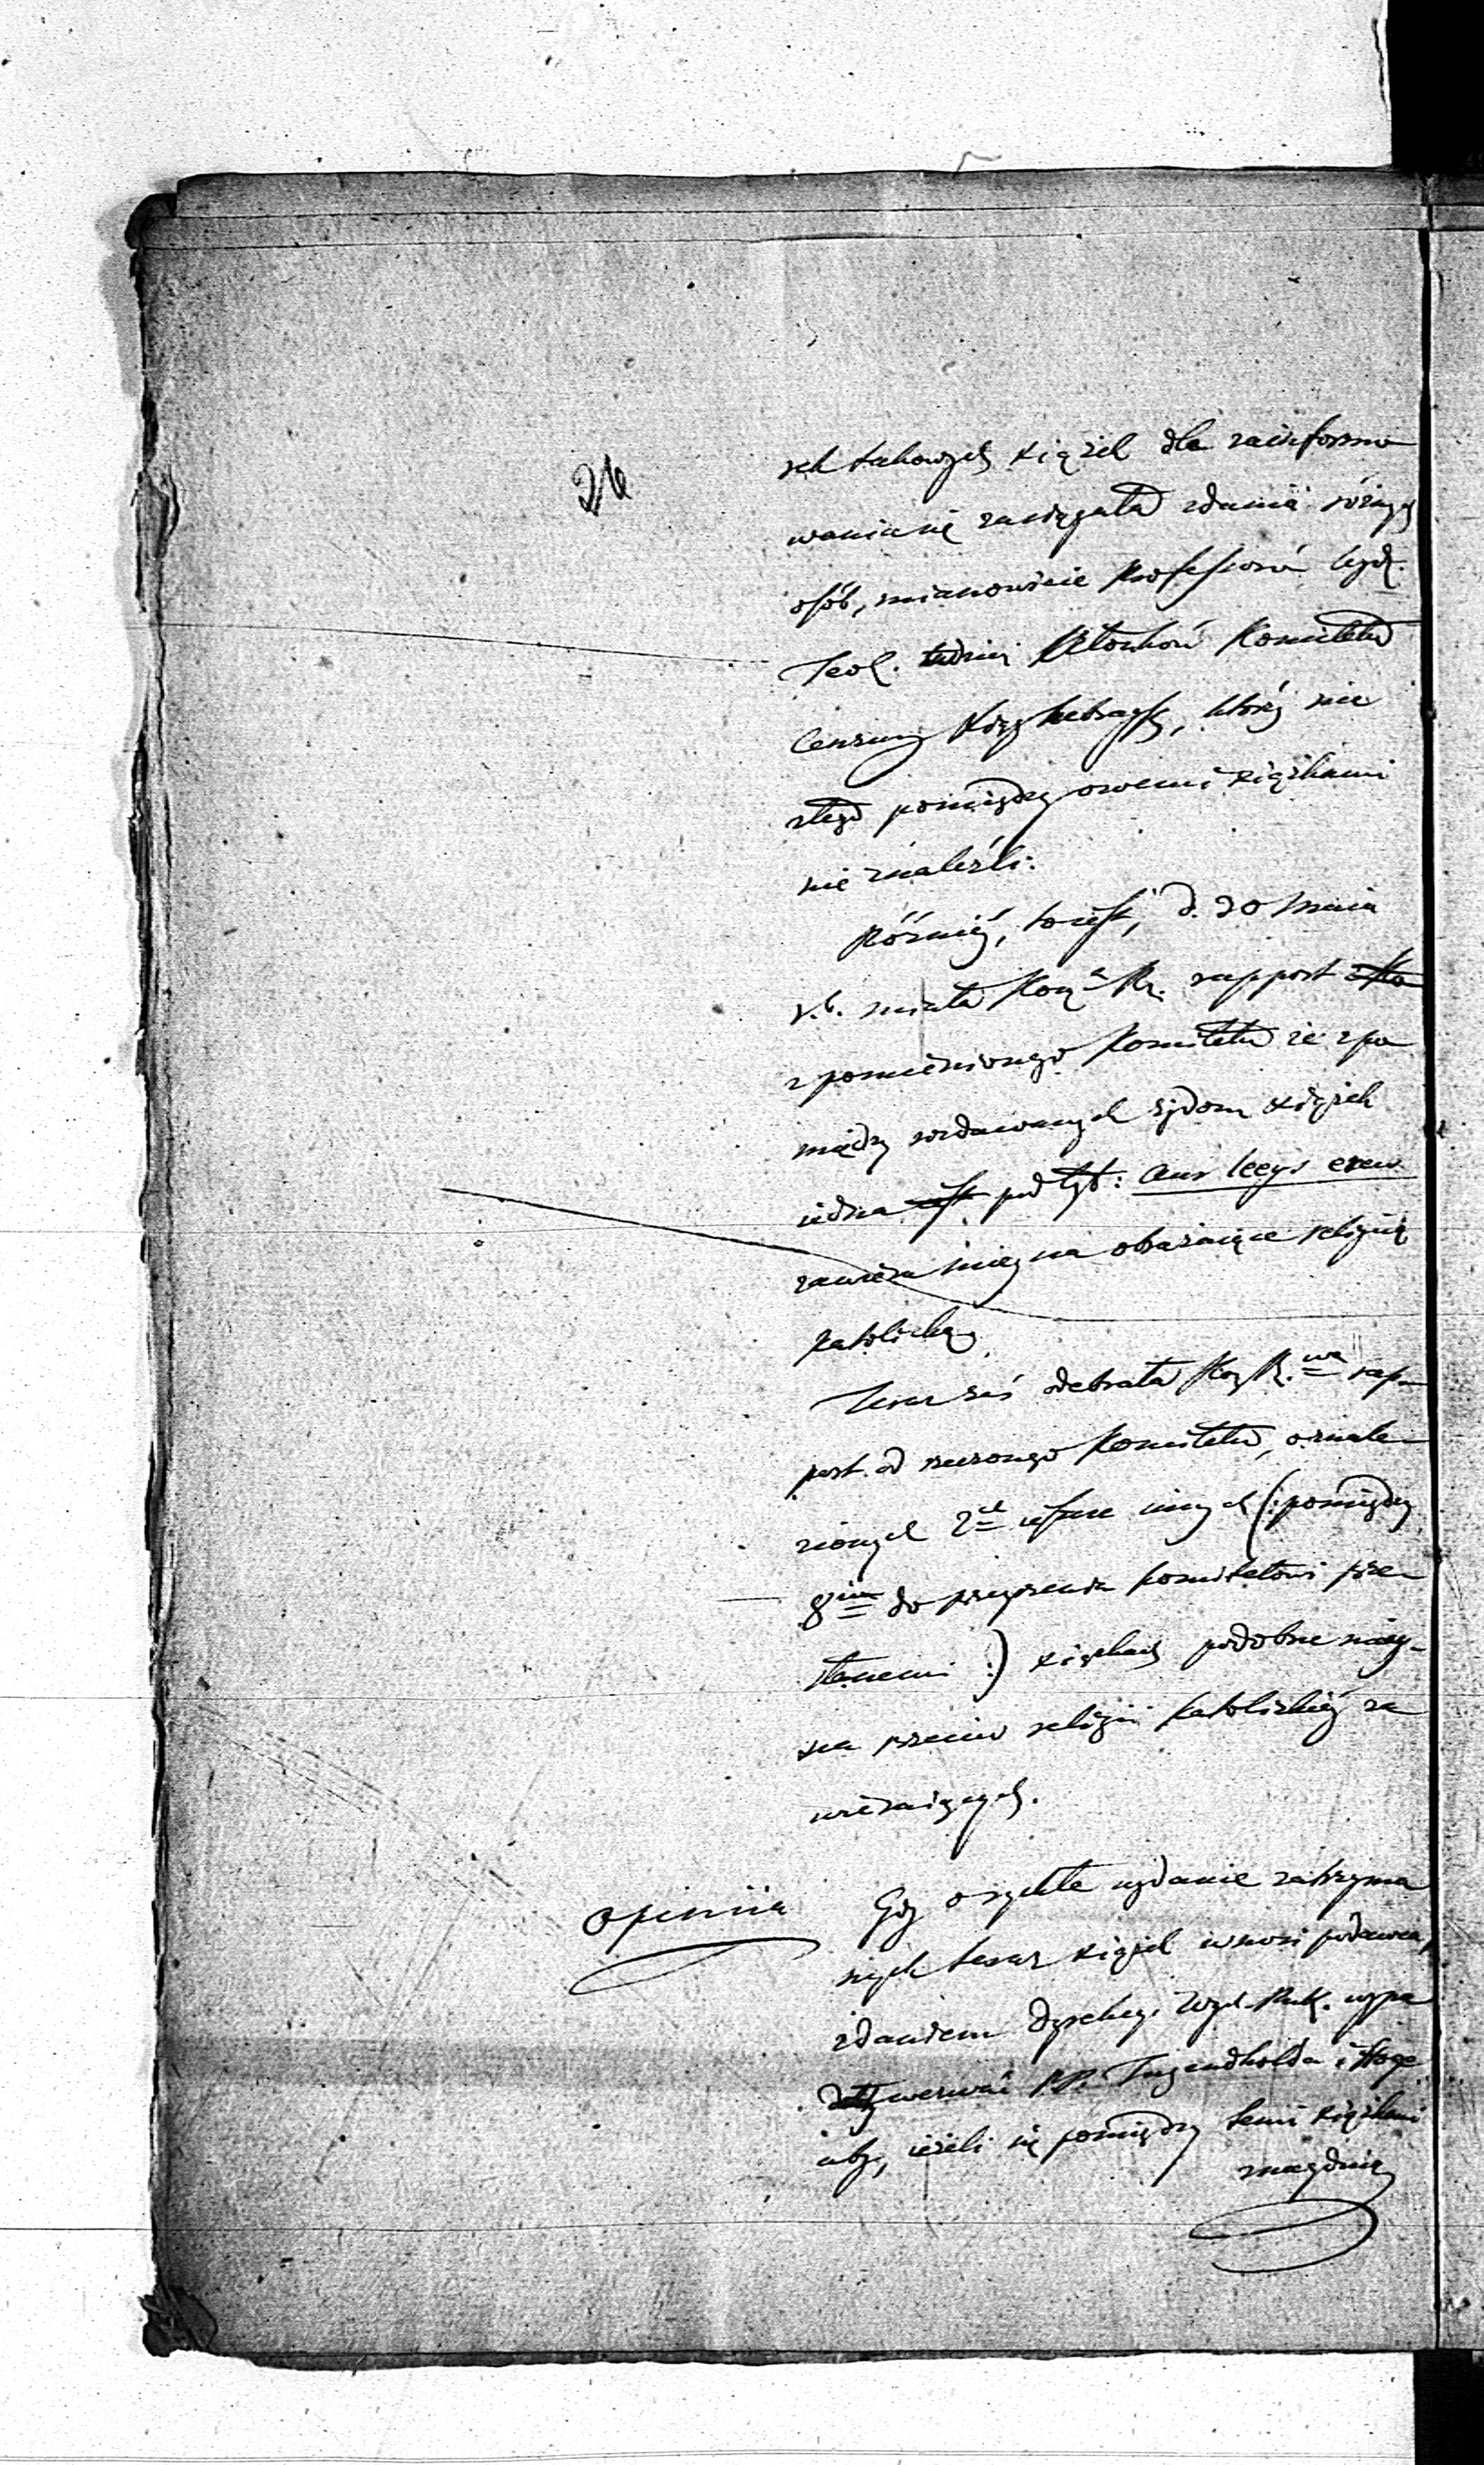 26
rch takowych książek dla zainformo
wania się zasięgała zdania różnych
osób, mianowicie Professorów Wydz.
Teol. tudzież Członków Komitetu
Cenzury Ksiąg hebraysk, którzy nic
złego pomiędzy owemi książkami
nie znaleźli.
Później, to iest, d. 20 Maia
r. b. miała Kom. R. rapport
z pomienionego Komitetu że z po
między wydawanych żydom książek
iedna pod tyt: Aur leeys erew
zawiera mieysca obrażaiące religią
katolicką
Teraz zaś odebrała Kom. R.wa rap-
port od rzeczonego Komitetu, o znale-
zionych 2ch ieszcze innych (: pomiędzy
8iu do przeyrzenia Komitetowi prze-
słanemi :) książkach podobne miey-
sca przeciw religii katolickiéy za
wieraiących.
Opiniia
Gdy o rychłe wydanie zatrzyma
nych teraz książek wnosi podawca,
zdaniem Dyrekcyi Wych. Publ. wypa
da wezwać PP. Tugendholda i Hoge
aby, ieżeli się pomiędzy temi książkami
znaydują